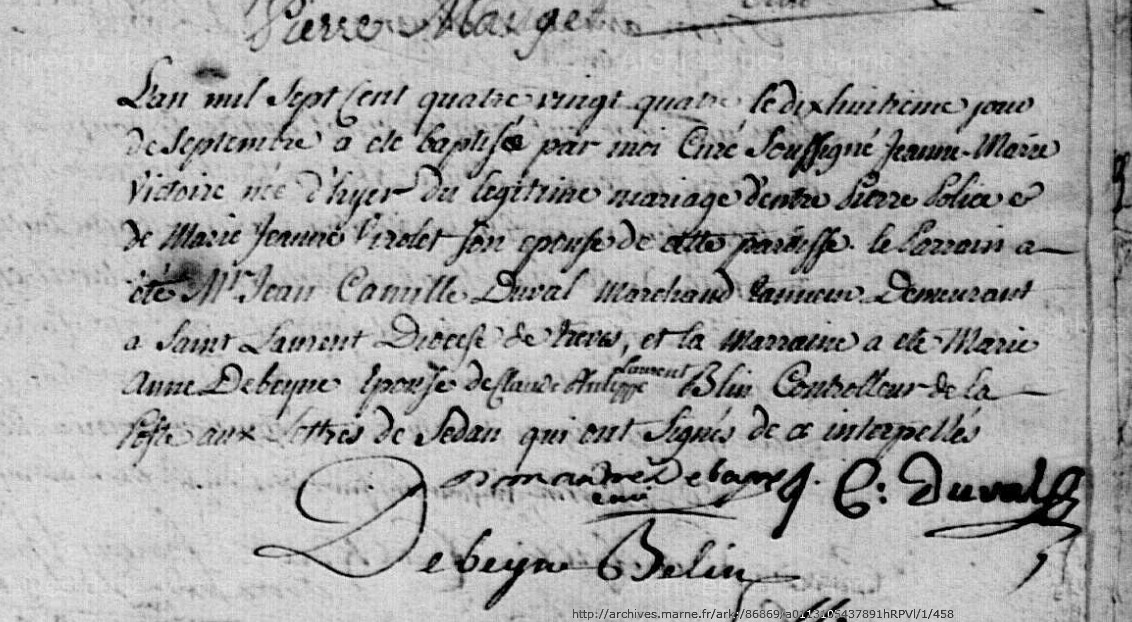 Pierre Mauget
L'an mil Sept Cent quatre vingt quatre le dix huitieme jour
de Septembre a eté baptisée par moi Curé Soussigné Jeanne-Marie
Victoire née d'hyer du legitime mariage d'entre Pierre Police &
de Marie Jeanne Virolet son epouse de cette paroisse. le Parrain a
été Mr Jean Camille Duval Marchand Tanneur Demeurant
a Saint Laurent Diocese de treves, et la Marraine a eté Marie
Anne Debeyne Epouse de Claude Philippe Laurent Blin Controlleur de la
Poste aux Lettres de Sedan qui ont Signés de ce interpellés
J. C: Duval
Debeyne Belin
http://archives.marne.fr/ark:/86869/a0113105437891hRPVl/1/458